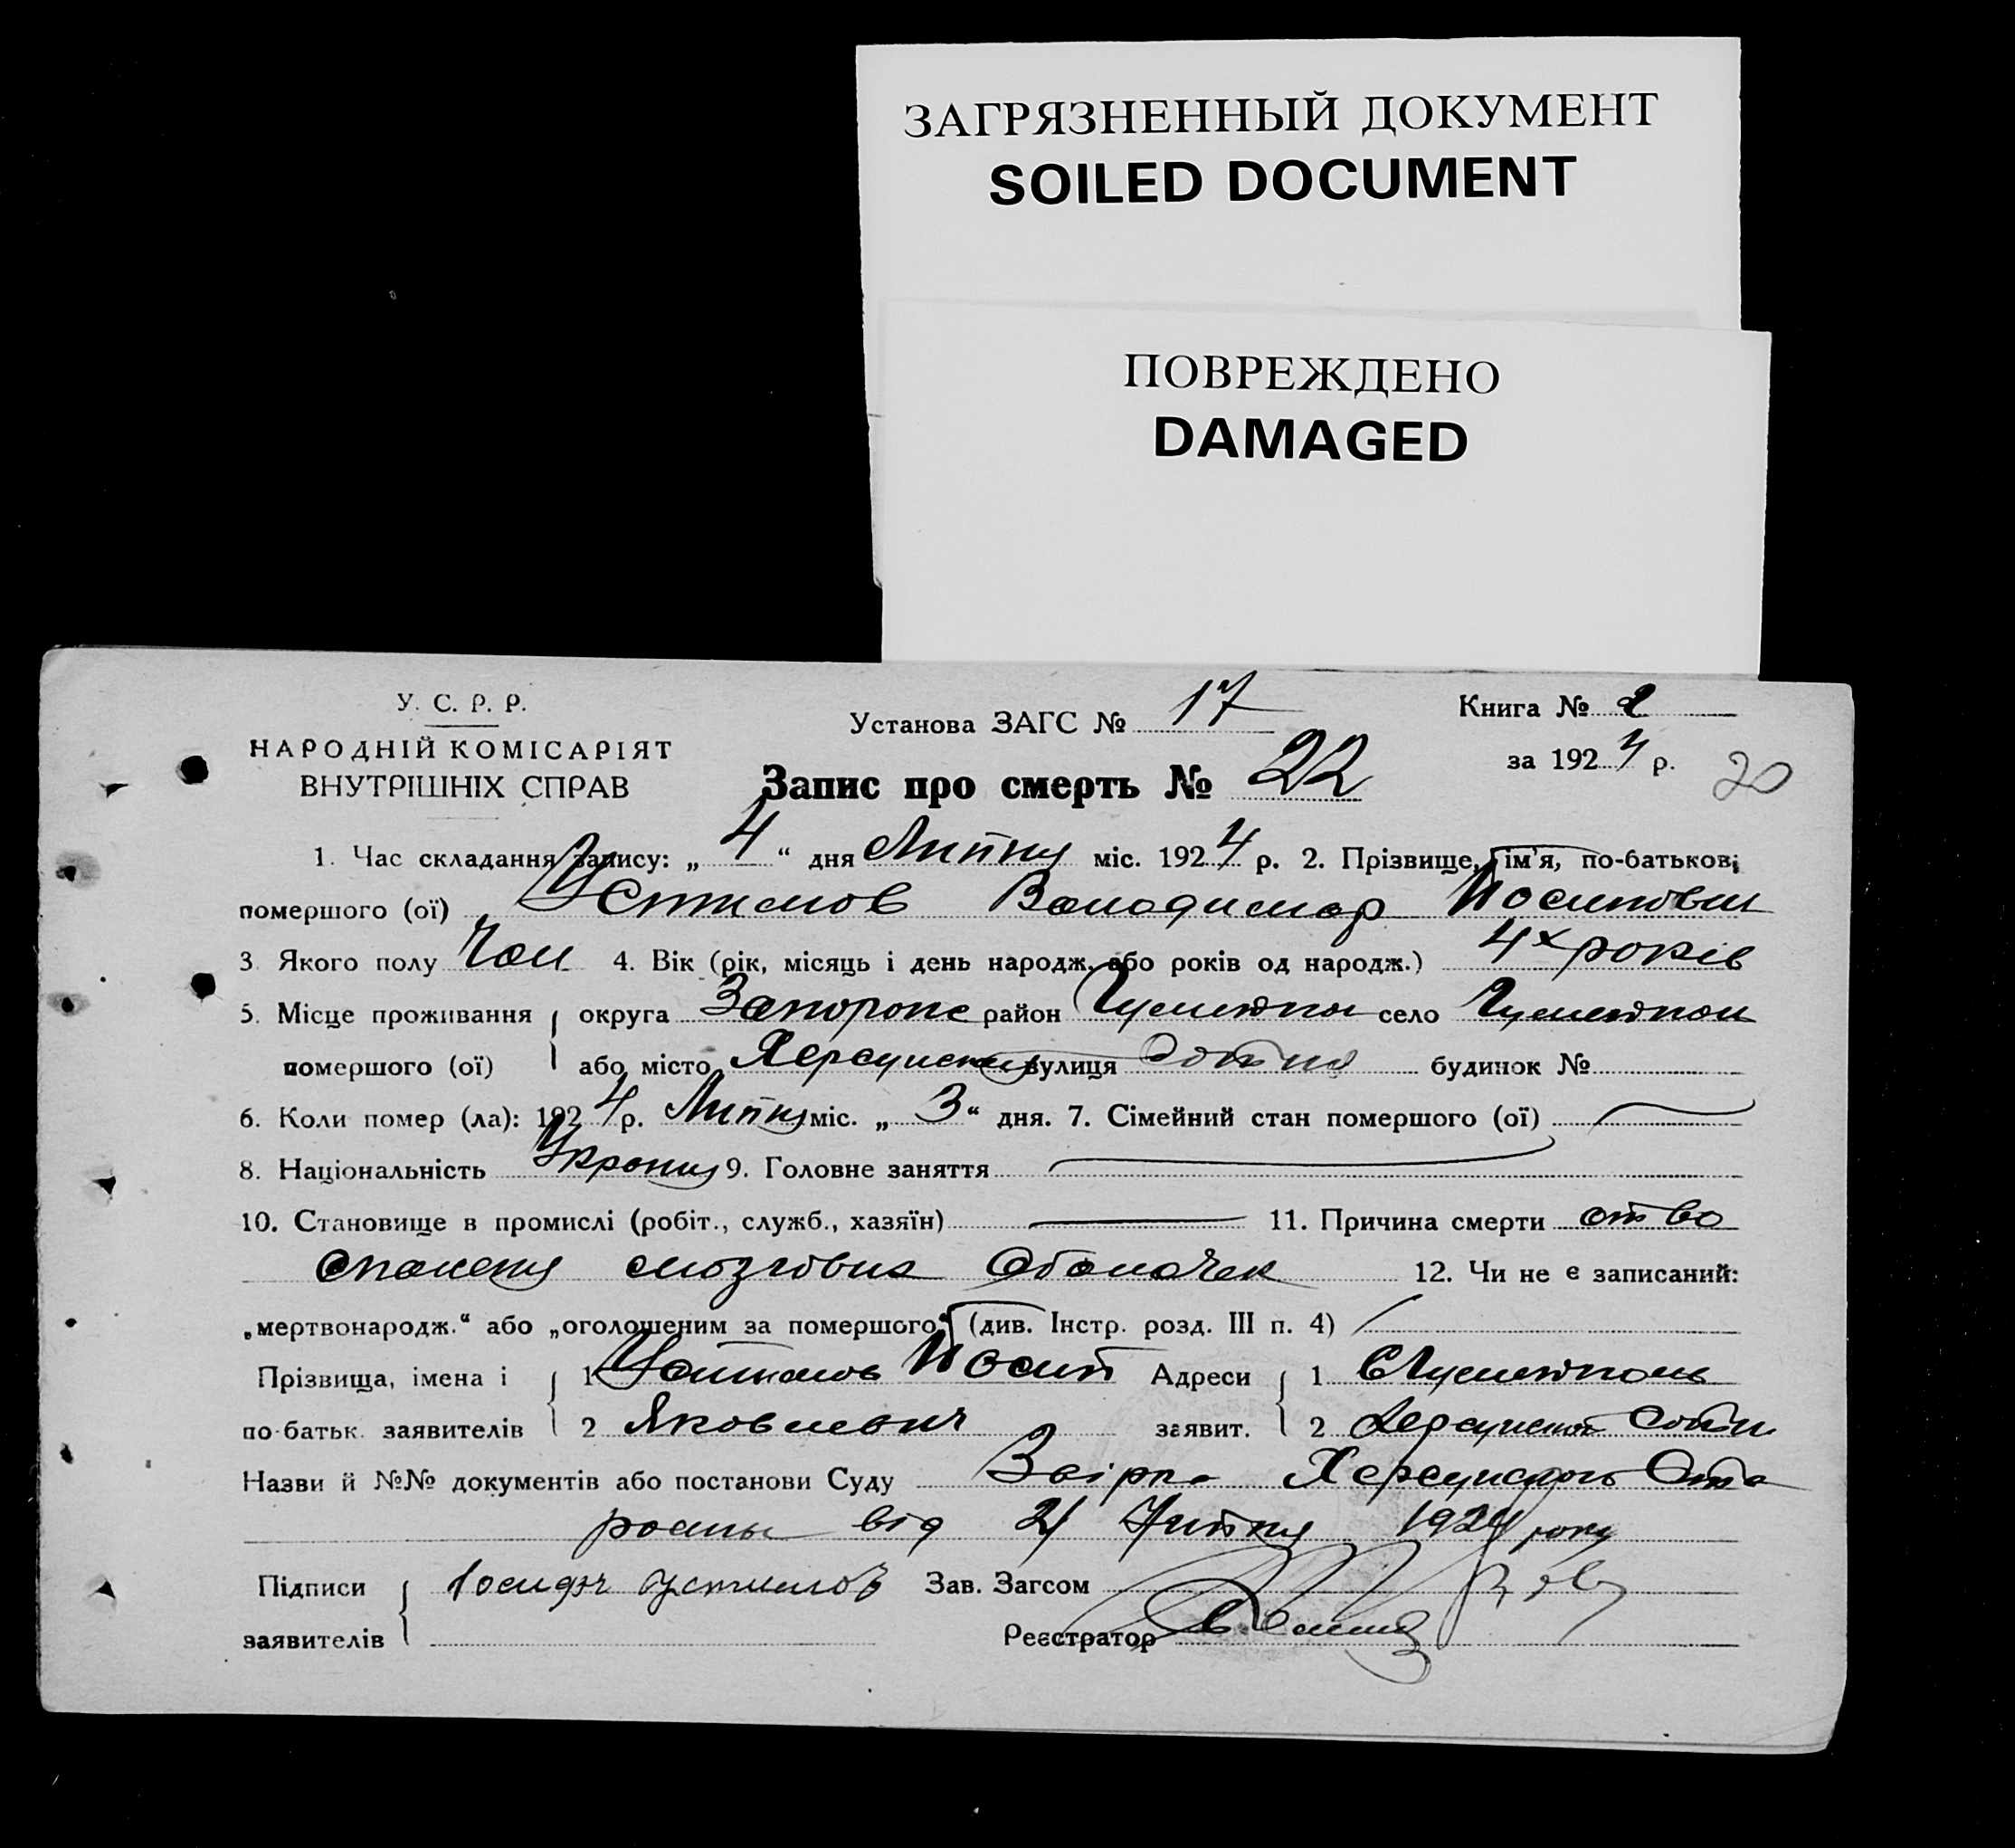 ЗАГРЯЗНЕННЫЙ ДОКУМЕНТ
SOILED DOCUMENT
ПОВРЕЖДЕНО
DAMAGED
У. С. Р. Р.
НАРОДНІЙ КОМІСАРІЯТ
ВНУТРІШНІХ СПРАВ
Установа ЗАГС № 17
Книга № 2
за 1924 р. 20
Запис про смерть № 22
1. Час складання запису: „4“ дня Липня міс. 1924 р. 2. Прізвище, ім'я, по-батькові
помершого (ої) Устимов Володимир Йосипович
3. Якого полу Чол 4. Вік (рік, місяць і день народж. або років од народж.) 4х років
5. Місце проживання округа Запоріж район Гуляйпол село Гуляйпол
помершого (ої) або місто Херсунська вулиця сотня будинок №
6. Коли помер (ла): 1924 р. Липня міс. „3“ дня. 7. Сімейний стан помершого (ої)
8. Національність Україн 9. Головне заняття
10. Становище в промислі (робіт., служб., хазяїн) 11. Причина смерти от во
спаления мозгових оболочек 12. Чи не є записаний:
„мертвонародж.“ або „оголошеним за помершого“ (див. Інстр. розд. III п. 4)
Прізвища, імена і 1 Устимов Йосип Адреси 1 Гуляйполь
по-батьк. заявителів 2 Яковлевич заявит. 2 Херсунской сотні
Назви й №№ документів або постанови Суду Херсунского Ста
росты від Липня 1924 року
Підписи Іосиф Устимов Зав. Загсом
заявителів Реєстратор